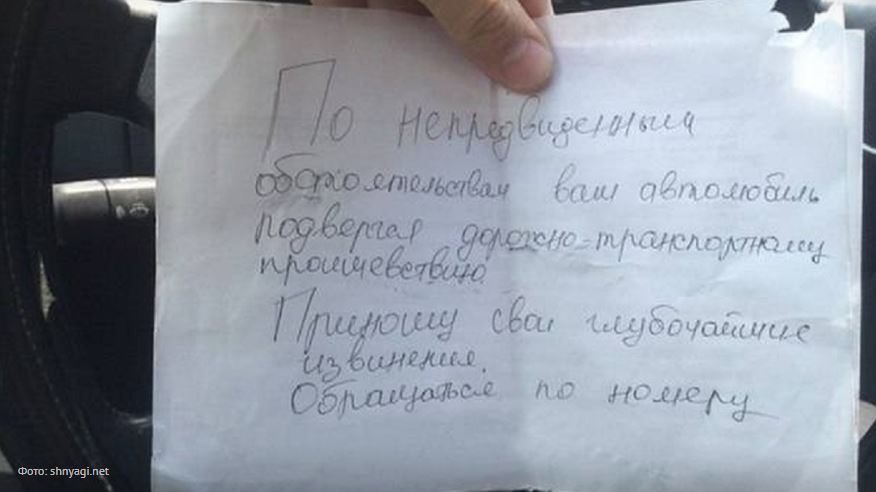 По непредвиденным
обстоятельствам ваш автомобиль
подвергся дорожно-транспортному
проишевствию.
Приношу свои глубочайшие
извинения.
Обращаться по номеру
Фото: shnyagi.net